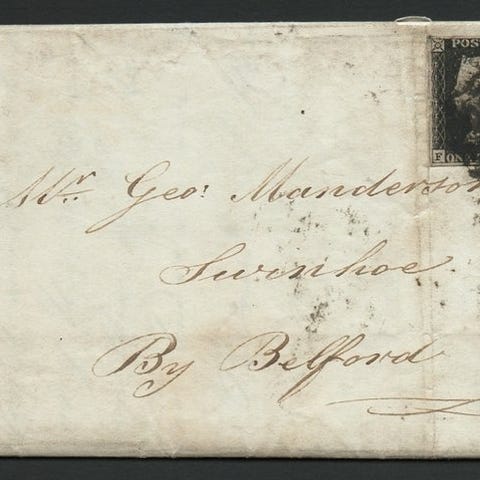 POS
F ON
Mr. Geo: Manderson
Swinhoe
By Belford